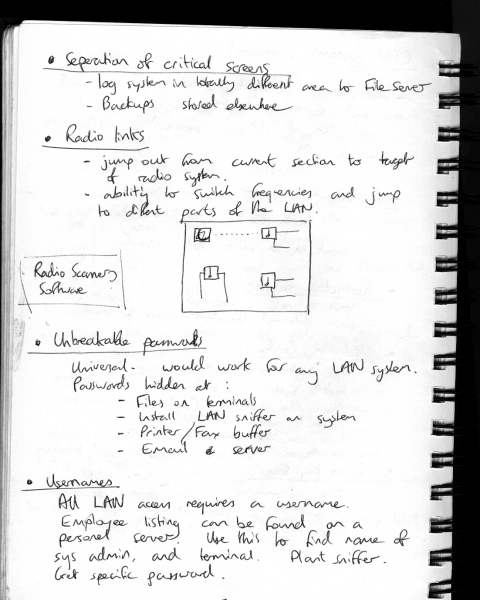 • Seperation of critical screens
- log system in totally different area to File Server
- Backups stored elsewhere
• Radio links
- jump out from current section to target
of radio system.
- ability to switch frequencies and jump
to diffent parts of the LAN.
Radio Scanner
Software
• Unbreakable passwords
Universal - would work for any LAN system.
Passwords hidden at :
- Files on terminals
- Install LAN sniffer on system
- Printer / Fax buffer
- Email server
• Usernames
All LAN access requires a username.
Employee listing can be found on a
personal server. Use this to find name of
sys admin, and terminal. Plant sniffer.
Get specific password.